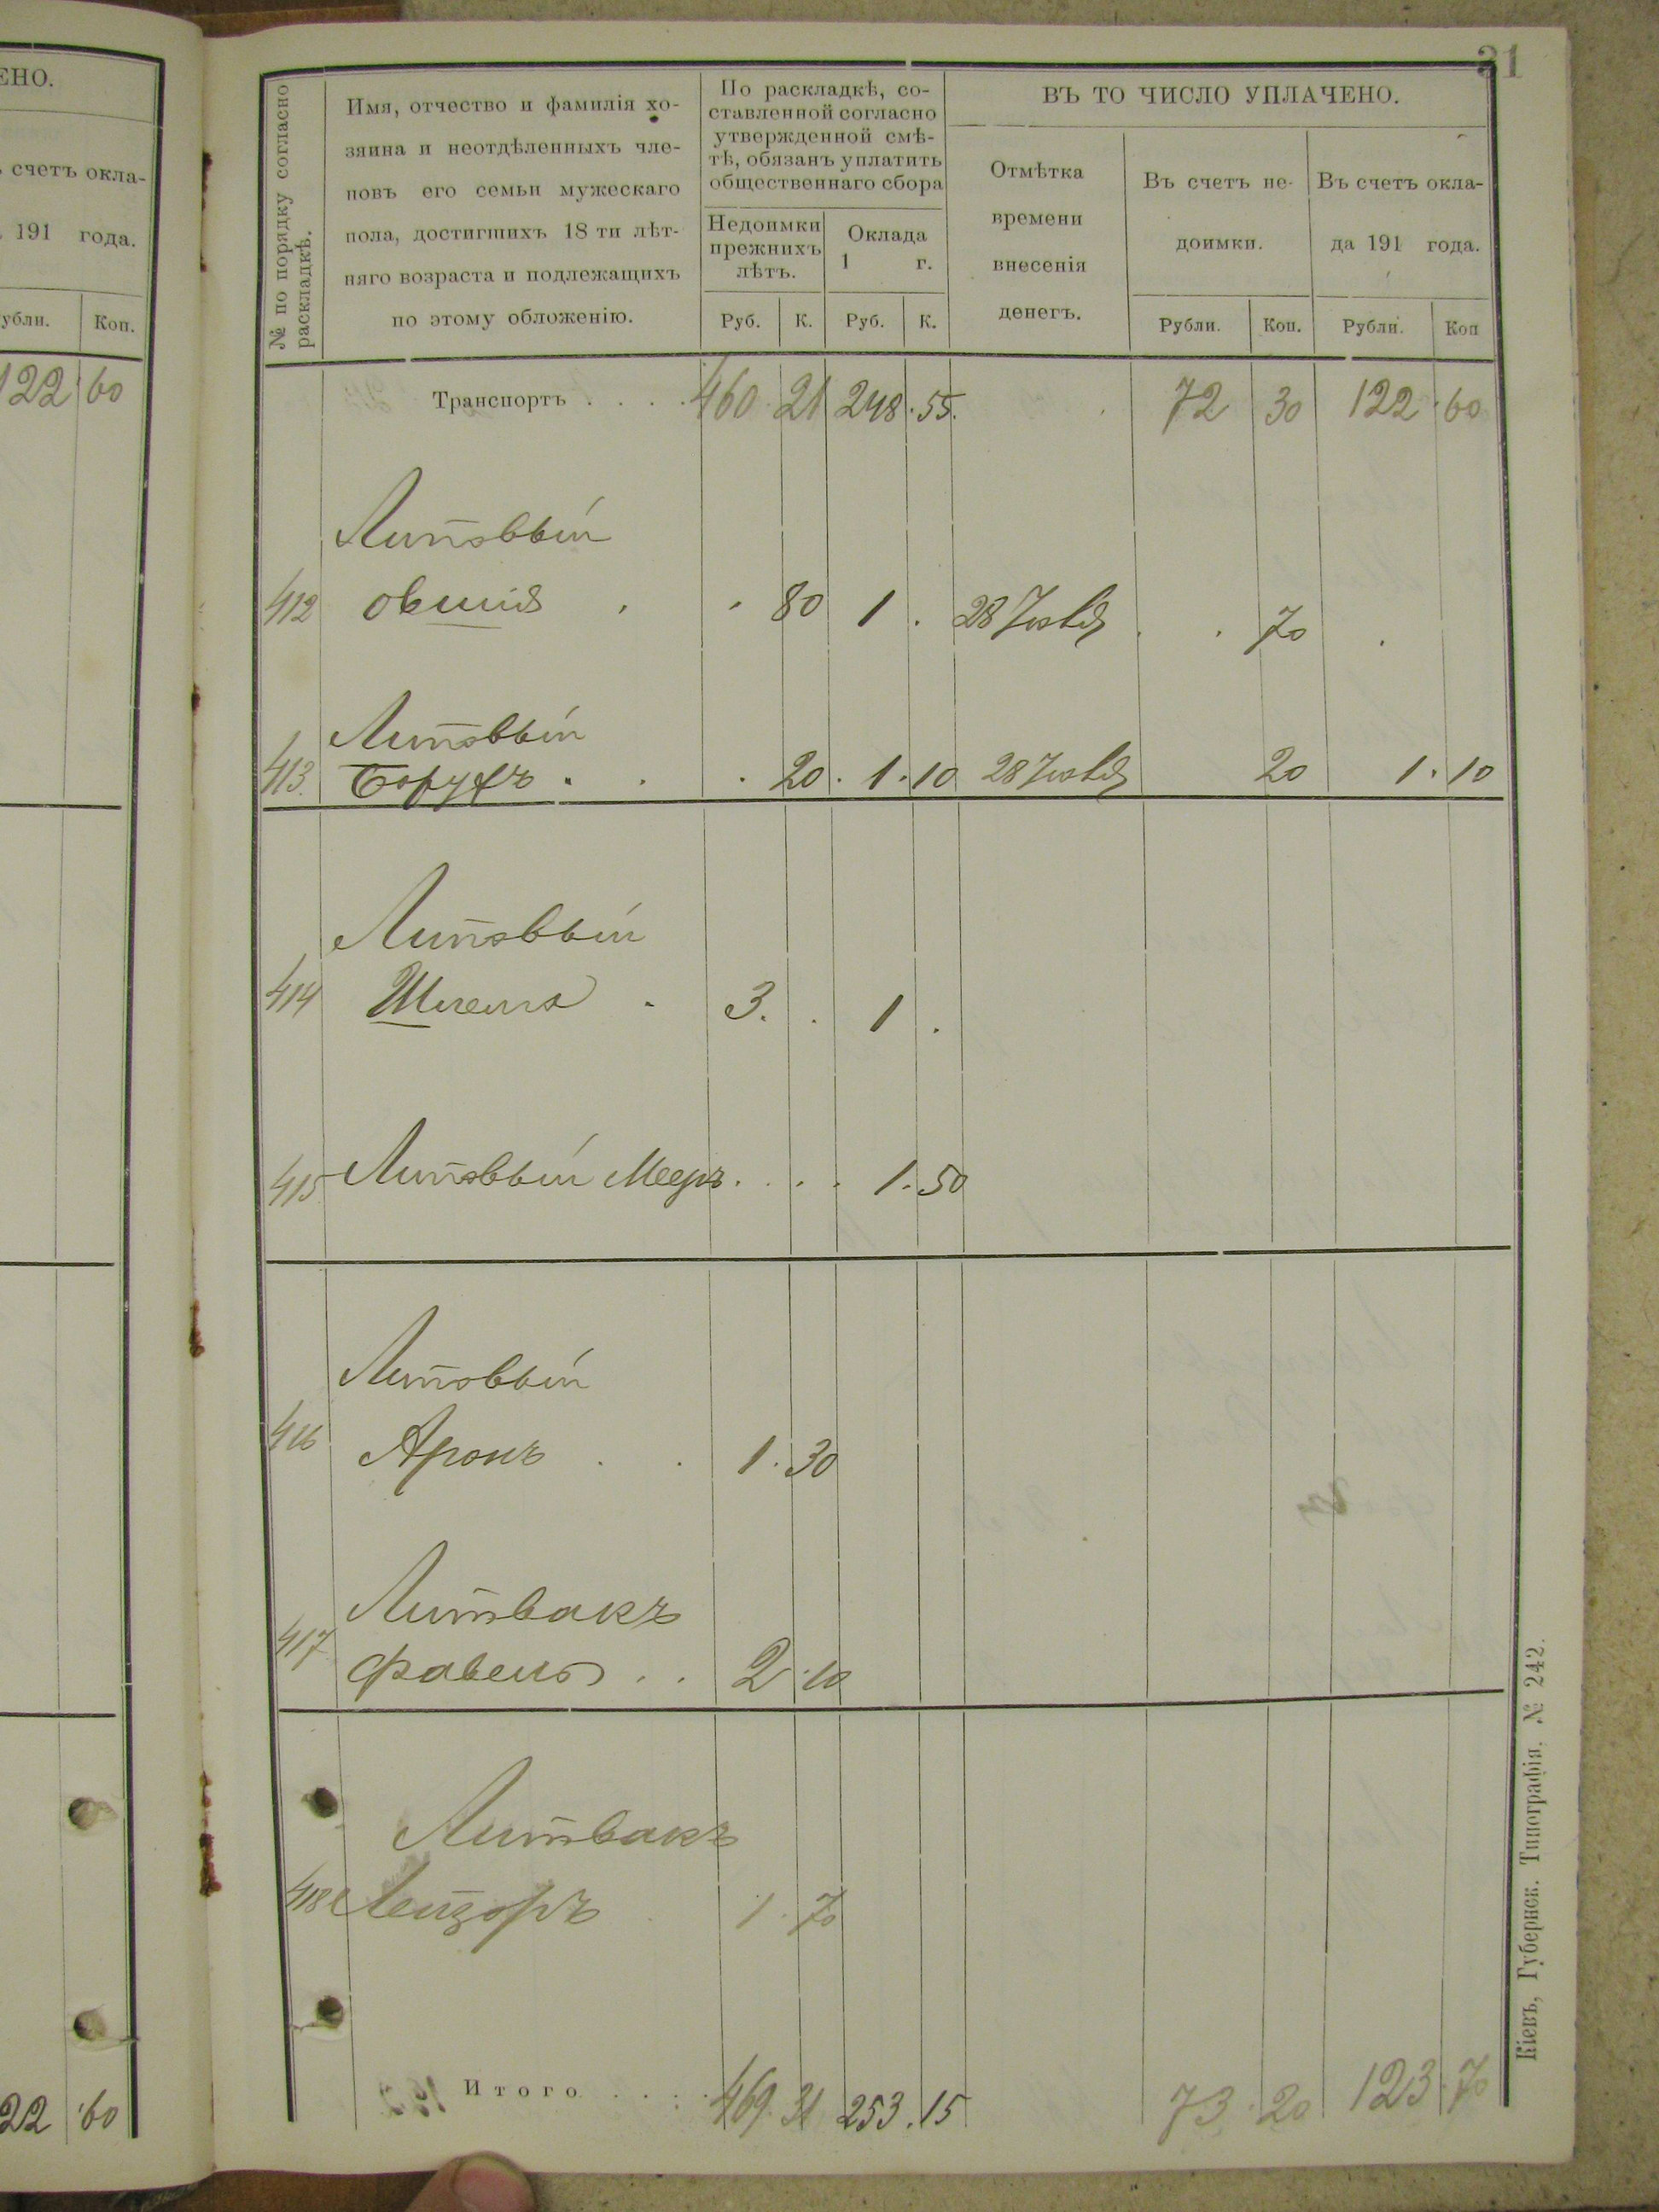 ЕНО.
счетъ окла-
191 года.
Коп.
122 60
22 60
31
№ по порядку согласно раскладкѣ.
Имя, отчество и фамилія хо-
зяина и неотдѣленныхъ чле-
новъ его семьи мужескаго
пола, достигшихъ 18 ти лѣт-
няго возраста и подлежащихъ
по этому обложенію.
По раскладкѣ, со-
ставленной согласно
утвержденной смѣ-
тѣ, обязанъ уплатить
общественнаго сбора
Недоимки
прежнихъ
лѣтъ.
Оклада
1 г.
Руб. К. Руб. К.
ВЪ ТО ЧИСЛО УПЛАЧЕНО.
Отмѣтка
времени
внесенія
денегъ.
Въ счетъ не-
доимки.
Въ счетъ окла-
да 191 года.
Рубли. Коп. Рубли. Коп
Транспортъ . . . . 460 21 248 . 55. 72 30 122 . 60
Литовый
412 Овшія . . 80 1 . 28 . . 70 .
Литовый
413. Борухъ . . . 20. 1. 10 28 20 1. 10
Литовый
414 Шлема . 3. . 1 .
415 Литовый Мееръ . . . . 1. 50
Литовый
416 Аронъ . . 1. 30
Литвакъ
417 Фавель . . 2. 10
Литвакъ
418 Лейзоръ . 1. 70
Итого . . . . 469. 31 253 . 15 73. 20 123. 70
Кіевъ, Губернск. Типографія. № 242.